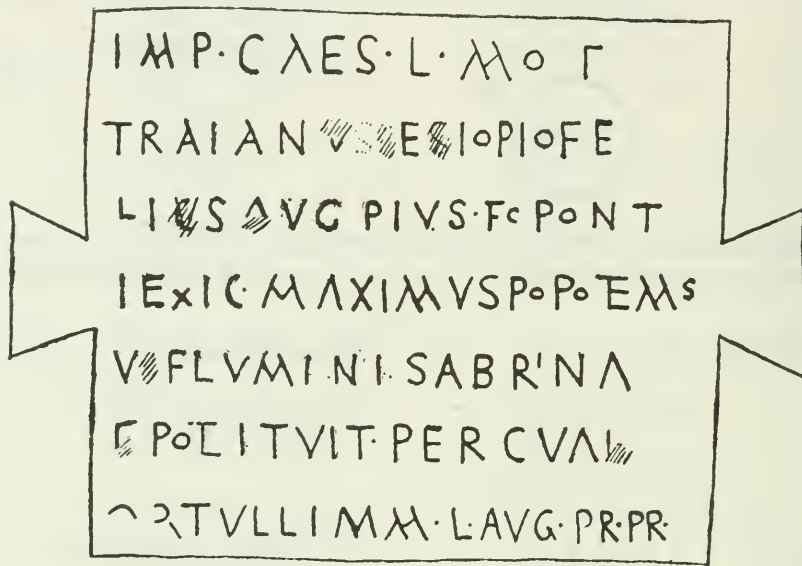 IMP·CAES·L·MO Γ
TRAIAN E IOPIOFE
LI S AVG PIVS·Fc PONT
IExIC·MAXIMVSPoPoTEMs
V FLVMINI·SABR'NA
PoTITVIT·PERCVAL
TVLLIMM·L·AVG·PR·PR·